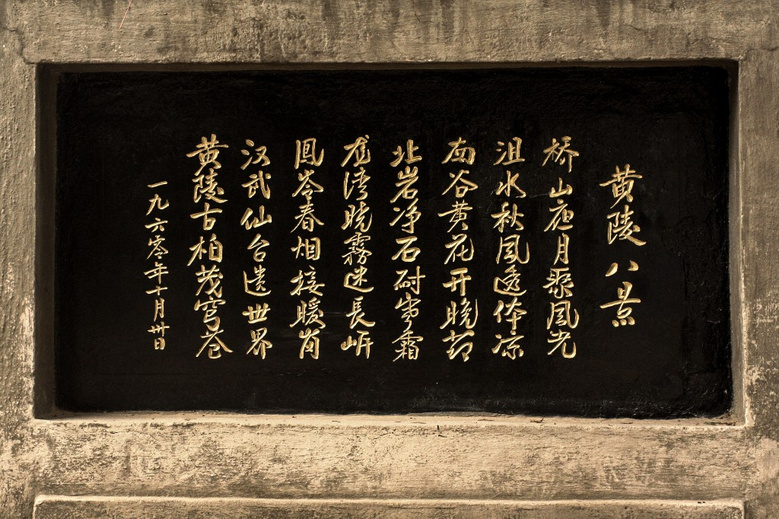 黄陵八景
桥山夜月聚风光
沮水秋风透体凉
南谷黄花开晚节
北岩净石耐岁霜
龙湾晓霧迷長岍
凤岺春烟接暖岗
汉武仙台遗世界
黄陵古柏茂穹苍
一九六零年十月卅日